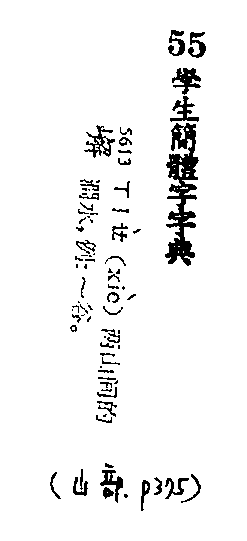 55
學生簡體字字典
5613 ㄒㄧㄝˋ (xiè) 兩山間的
澗水, 例: ~谷。
(山部. p375)